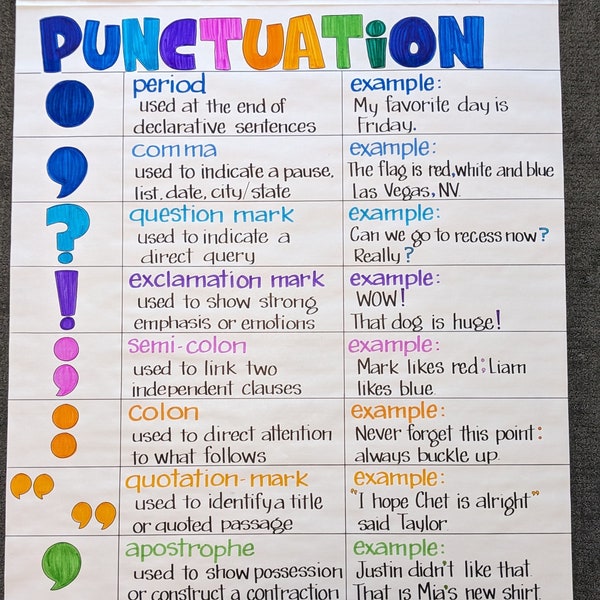 PUNCTUATION
period
used at the end of
declarative sentences
example:
My favorite day is
Friday.
comma
used to indicate a pause,
list, date, city/state
example:
The flag is red, white and blue
Las Vegas, NV.
question mark
used to indicate a
direct query
example:
Can we go to recess now?
Really?
exclamation mark
used to show strong
emphasis or emotions
example:
WOW!
That dog is huge!
semi-colon
used to link two
independent clauses
example:
Mark likes red; Liam
likes blue.
colon
used to direct attention
to what follows
example:
Never forget this point:
always buckle up.
quotation-mark
used to identify a title
or quoted passage
example:
"I hope Chet is alright"
said Taylor.
apostrophe
used to show possession
or construct a contraction
example:
Justin didn't like that.
That is Mia's new shirt.